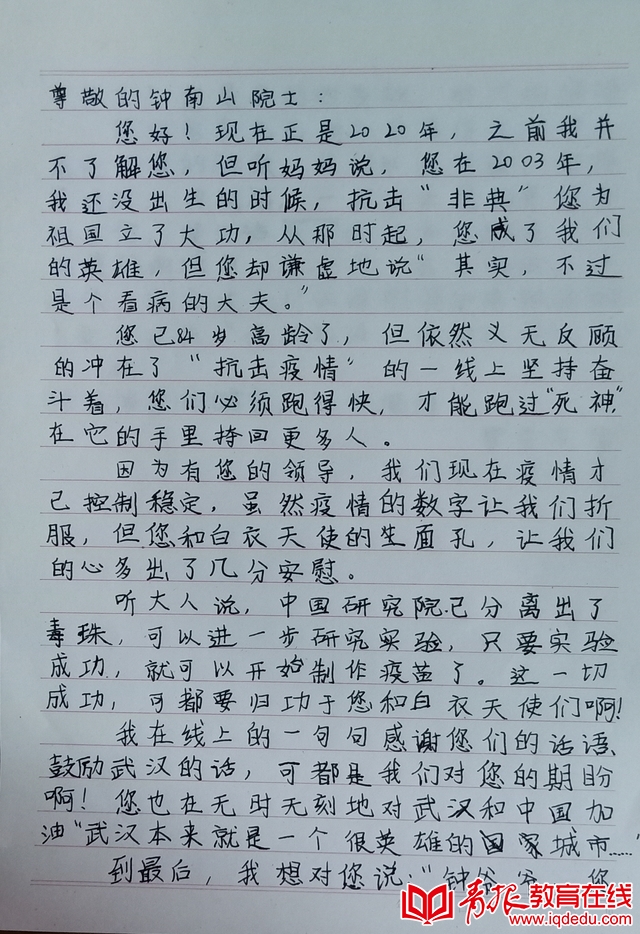 尊敬的钟南山院士：
您好！现在正是2020年，之前我并
不了解您，但听妈妈说，您在2003年，
我还没出生的时候，抗击“非典”您为
祖国立了大功，从那时起，您成了我们
的英雄，但您却谦虚地说“其实，不过
是个看病的大夫。”
您已84岁高龄了，但依然义无反顾
的冲在了“抗击疫情”的一线上坚持奋
斗着，您们必须跑得快，才能跑过“死神”
在它的手里抢回更多人。
因为有您的领导，我们现在疫情才
已控制稳定，虽然疫情的数字让我们折
服，但您和白衣天使的生面孔，让我们
的心多出了几分安慰。
听大人说，中国研究院已分离出了
毒珠，可以进一步研究实验，只要实验
成功，就可以开始制作疫苗了。这一切
成功，可都要归功于您和白衣天使们啊！
我在线上的一句句感谢您们的话语、
鼓励武汉的话，可都是我们对您的期盼
啊！您也在无时无刻地对武汉和中国加
油“武汉本来就是一个很英雄的国家城市……”
到最后，我想对您说：“钟爷爷，您
青报教育在线
www.iqdedu.com